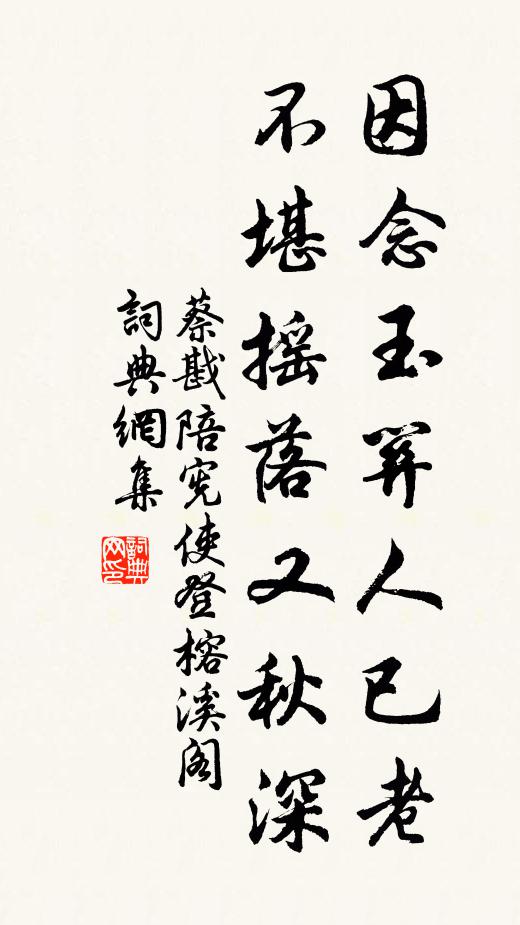 因念玉關人已老
不堪摇落又秋深
蔡戡陪宪使登榕溪阁
詞典網集
詞典网印